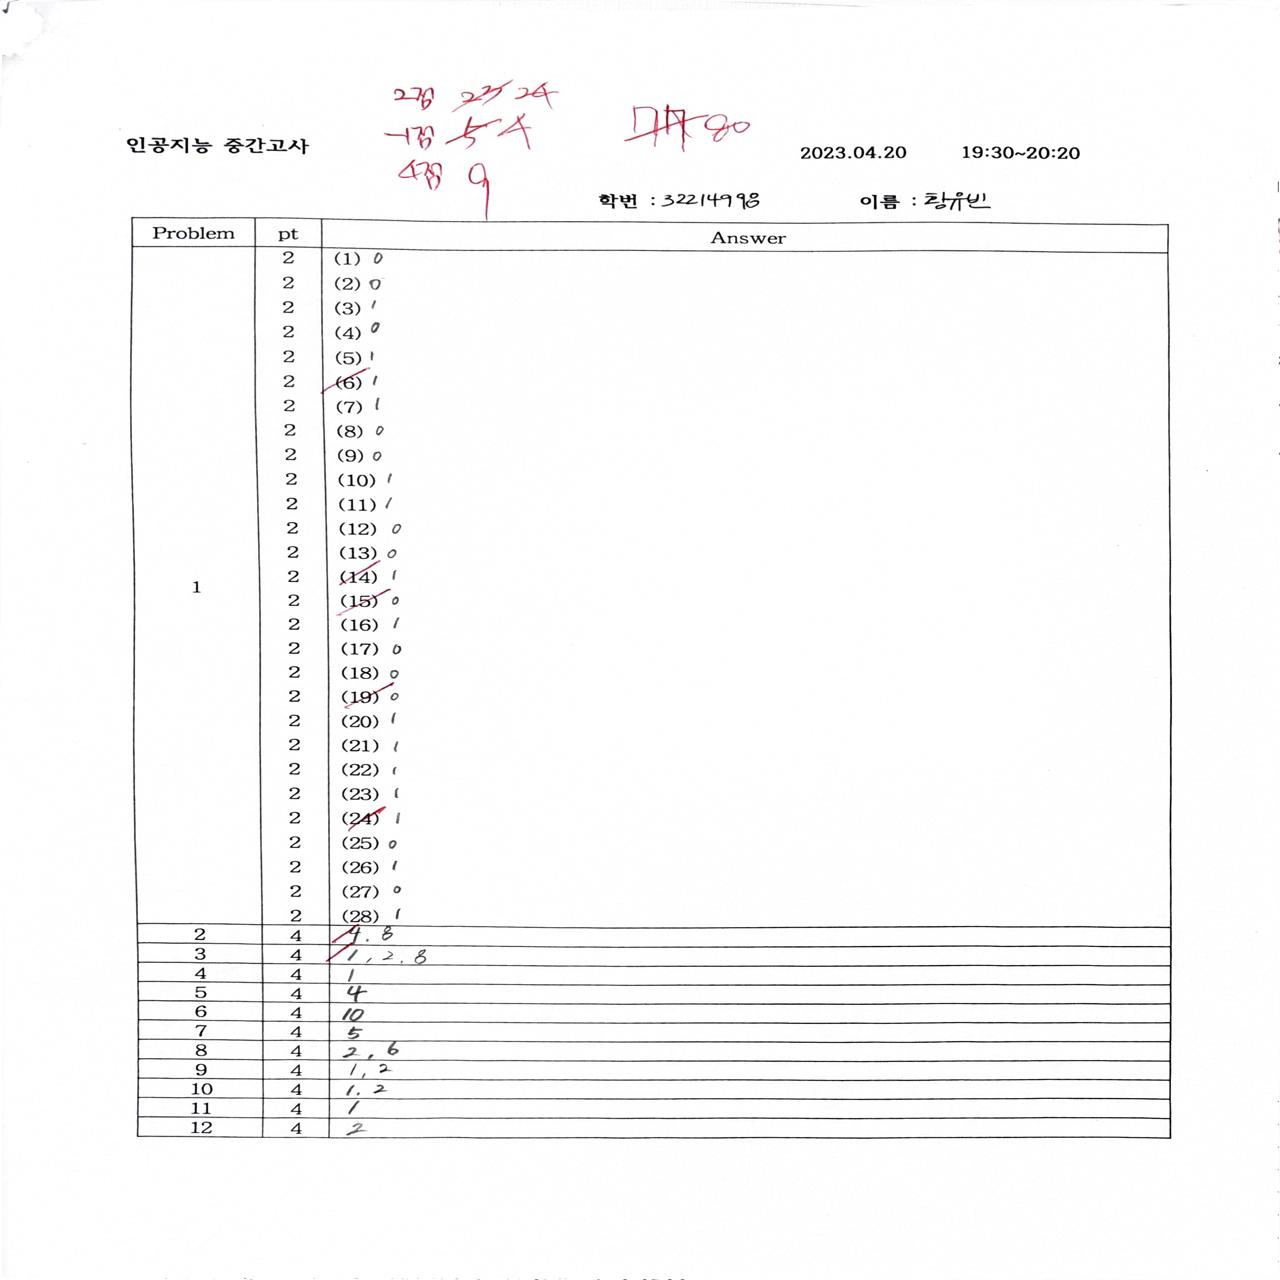 2점 23 24
-1점 5 4
4점 9
77 80
인공지능 중간고사
2023.04.20 19:30~20:20
학번 : 32214998 이름 : 황유빈
Problem pt Answer
1
2 (1) 0
2 (2) 0
2 (3) 1
2 (4) 0
2 (5) 1
2 (6) 1
2 (7) 1
2 (8) 0
2 (9) 0
2 (10) 1
2 (11) 1
2 (12) 0
2 (13) 0
2 (14) 1
2 (15) 0
2 (16) 1
2 (17) 0
2 (18) 0
2 (19) 0
2 (20) 1
2 (21) 1
2 (22) 1
2 (23) 1
2 (24) 1
2 (25) 0
2 (26) 1
2 (27) 0
2 (28) 1
2 4 4. 8
3 4 1, 2. 8
4 4 1
5 4 4
6 4 10
7 4 5
8 4 2, 6
9 4 1, 2
10 4 1. 2
11 4 1
12 4 2